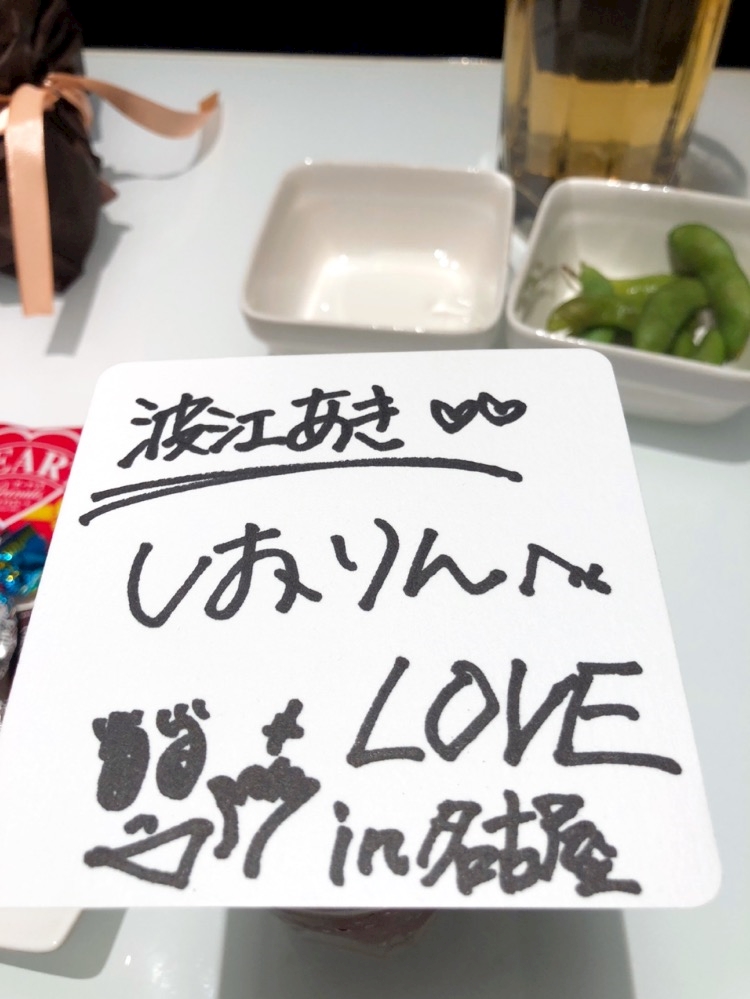 波江あき♡♡
しおりんへ
LOVE
in名古屋
EAR